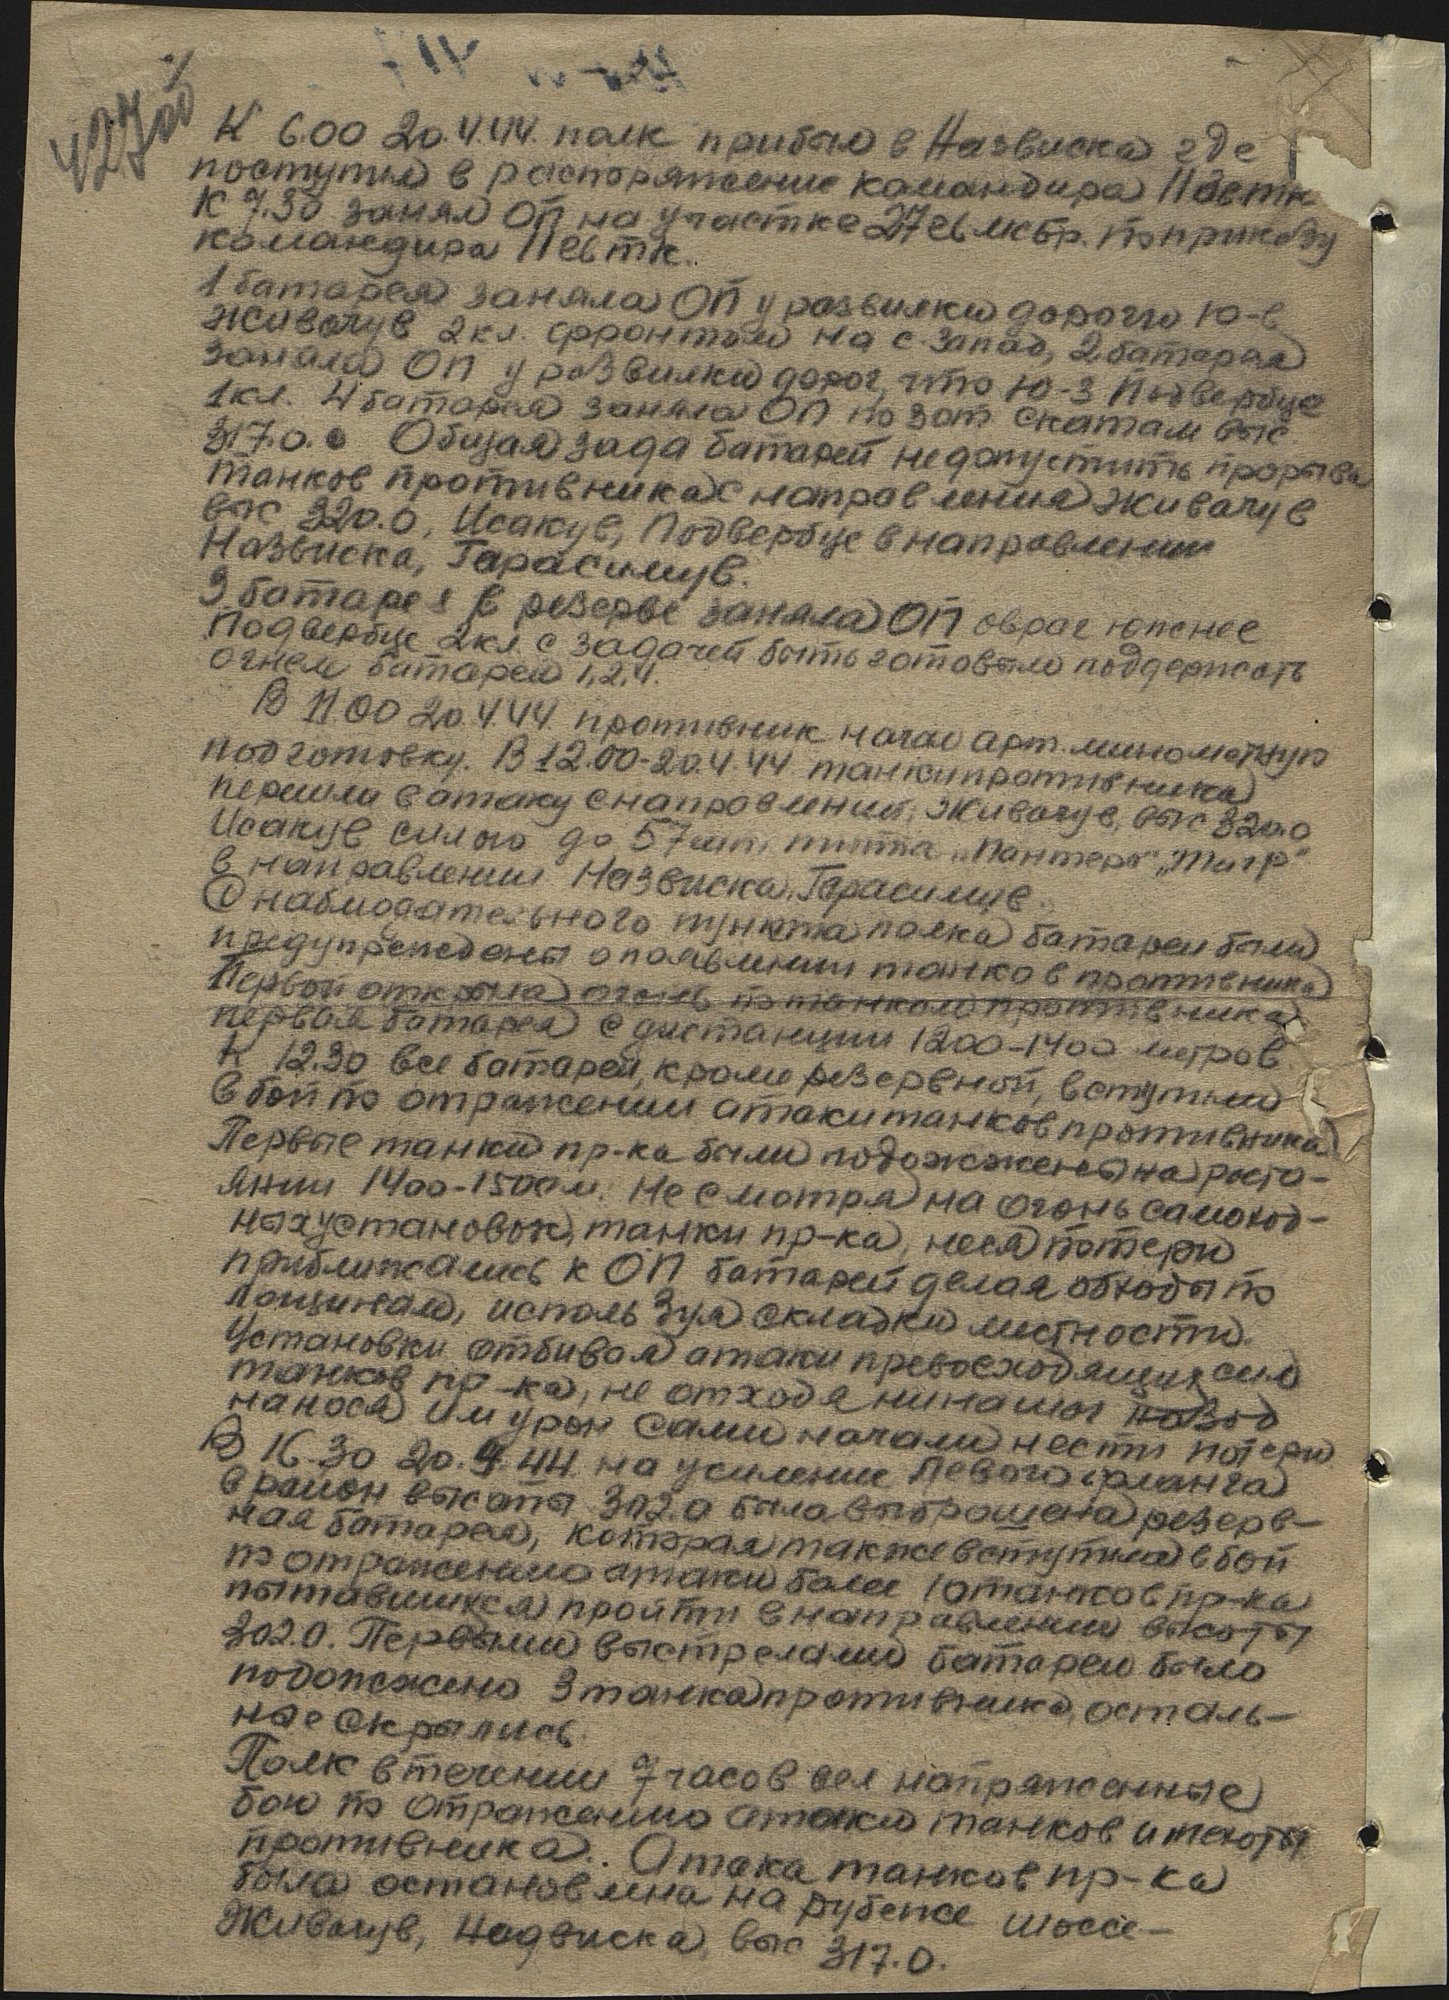 427об
К 6.00 20.4.44. полк прибыл в Назвиска где
поступил в распоряжение командира 11 гвтк
К 7.30 занял ОП на участке 27 гв мсбр. по приказу
командира 11 гв тк.
1 батарея заняла ОП у развилки дорого ю-в
Живачув 2 кл. фронтом на с. запад, 2 батарея
заняла ОП у развилки дорог, что ю-з Подвербце
1 кл. 4 батарея заняла ОП по зап скатам выс.
317.0. Общая зада батарей не допустить прорыва
танков противника с направления Живачув
выс 320.0, Исакув, Подвербце в направлении
Назвиска, Гарасимув.
3 батарея в резерве заняла ОП овраг южнее
Подвербце 2 кл. с задачей быть готовыми поддержать
огнем батарей 1,2,4.
В 11.00 20.4.44. противник начал арт. минометную
подготовку. В 12.00-20.4.44. танки противника
перешли в атаку с направлений; Живачув, выс 320.0
Исакув силою до 57 шт. типа „Пантера" „Тигр"
в направлении Назвиска, Гарасимув.
С наблюдательного пункта полка батареи были
предупреждены о появлении танков противника
Первой открыла огонь по танкам противника
первая батарея с дистанции 1200-1400 метров.
К 12.30 все батарей, кроме резервной, вступили
в бой по отражении атаки танков противника
Первые танки пр-ка были подожжены на расто-
янии 1400-1500 м. Не смотря на огонь самоход-
ных установок, танки пр-ка, неся потери
приближались к ОП батарей делая обходы по
лощинам, используя складки местности.
Установки отбивая атаки превосходящих сил
танков пр-ка, не отходя ни на шаг назад
нанося им урон сами начали нести потери
В 16.30 20.4.44 на усиление левого фланга
в район высоты 302.0 была выброшена резерв-
ная батарея, которая также вступила в бой
по отражению атаки более 10 танков пр-ка
пытавшихся пройти в направлении высоты
302.0. Первыми выстрелами батареи было
подожжено 3 танка противника, осталь-
ные скрылись.
Полк в течении 7 часов вел напряженные
бои по отражению атаки танков и пехоты
противника. Атака танков пр-ка
была остановлена на рубеже шоссе-
Живачув, Надвиска, выс 317.0.